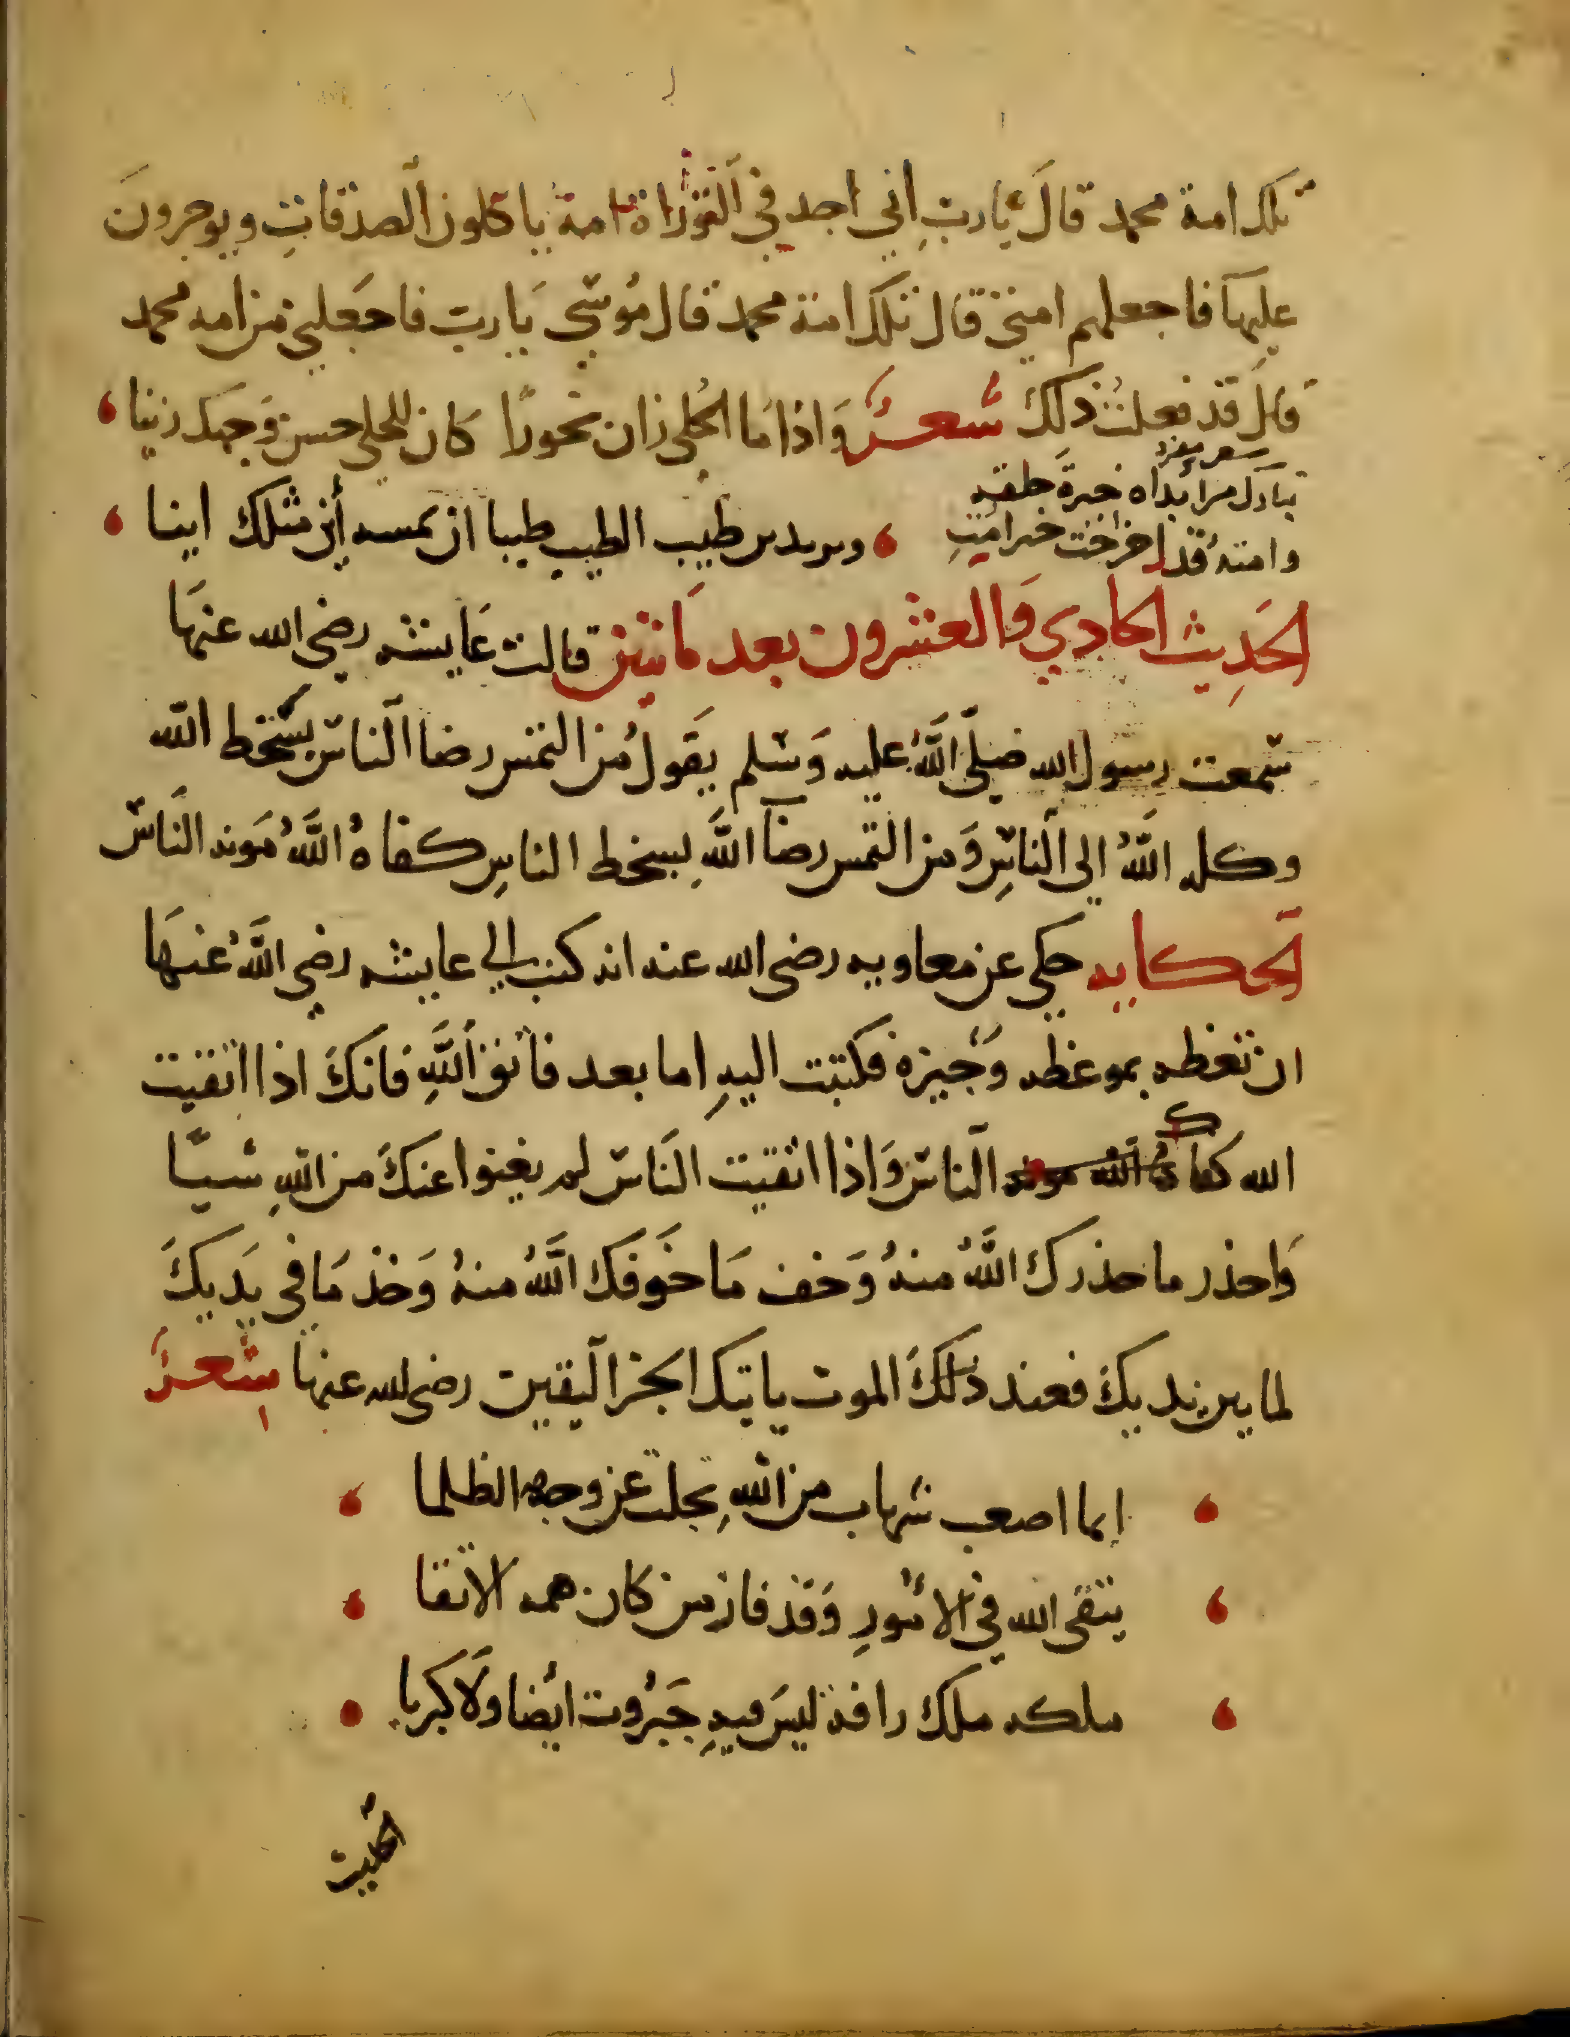 تلك امة محمد قالَ يا ربِ اني اجد في التوراة امة ياكلون الصدقاتِ ويوجرونَ
عليهاَ فاجعلهم امتي قال تلك امة محمد قال مُوسي يَا رب فاجعَلني من امه محمد
قال قد فعلت ذلك شعرٌ وَاذا مَا الحُلي زان نحورًا كان للحلي حسن وَجهك زينا
شعر مفرد
تبارك من أبداه خيرةَ خلقه
وامته قد اخرجت خير امةِ
ويريد من طيب الطيب طيبا ان تمسه أين مثلك اينا
الحَدِيث الحادي وَالعشرون بعد مَائتين قالت عَايشه رضي الله عنهَا
سمعت رسول الله صَلّى اللَّهُ عليه وَسَلم يقَول مُن التمس رضا النَاس بسَخط الله
وكله اللَّهُ الي النَاسِ وَمن التمس رضَا اللَّهِ بسخط الناسِ كفاهُ اللَّهُ مَونه النَاسَ
الحكايه حكي عن معاويه رضي الله عنه انه كتب الي عايشه رضي اللَّهُ عنهَا
ان تعظه بموعظه وَجيزه فكتبت اليهِ اما بعد فاتق اللَّهِ فانكَ اذا اتقيت
الله كفاك الناسَ وَاذا اتقيت النَاسَ لم يغنوا عنكَ من اللهِ شيًا
وَاحذر ما حذرك اللَّهُ منهُ وَخف مَا خَوفَك اللَّهُ منهُ وَخذ مَا في يَديكَ
لما بين يديكَ فعند ذلكَ الموت ياتيك الخبر اليَقين رضي الله عنها شعرٌ
انما اصعب شهاب من اللهِ تجلت عن وجهه الظلما
يتقى الله في الامُورِ وَقد فاز من كان همه الاتقا
ملكه ملك رافة ليسَ فيهِ جَبرُوت ايضا ولَا كبريا